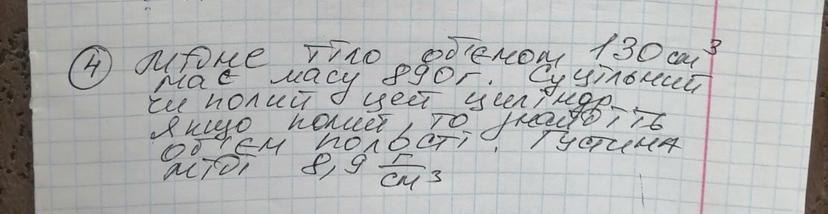 4 мідне тіло об'ємом 130 см³
має масу 890г. Суцільний
чи полий цей циліндр
якщо полий, то знайдіть
об'єм полості. Густина
міді 8,9 г/см³